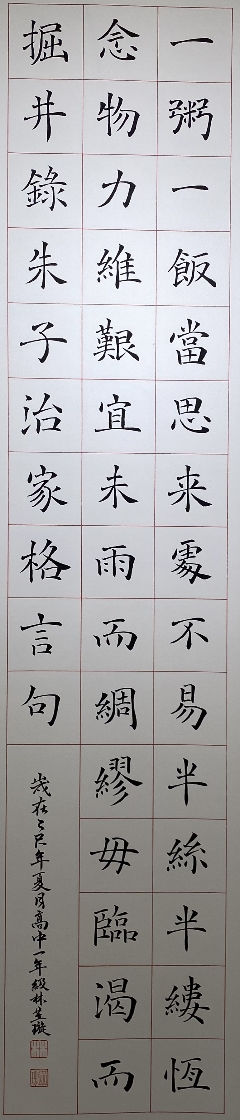 一粥一飯當思来處不易半絲半縷恆
念物力維艱宜未雨而綢繆毋臨渴而
掘井錄朱子治家格言句
歲在乙巳年夏月高中一年級林芷璇